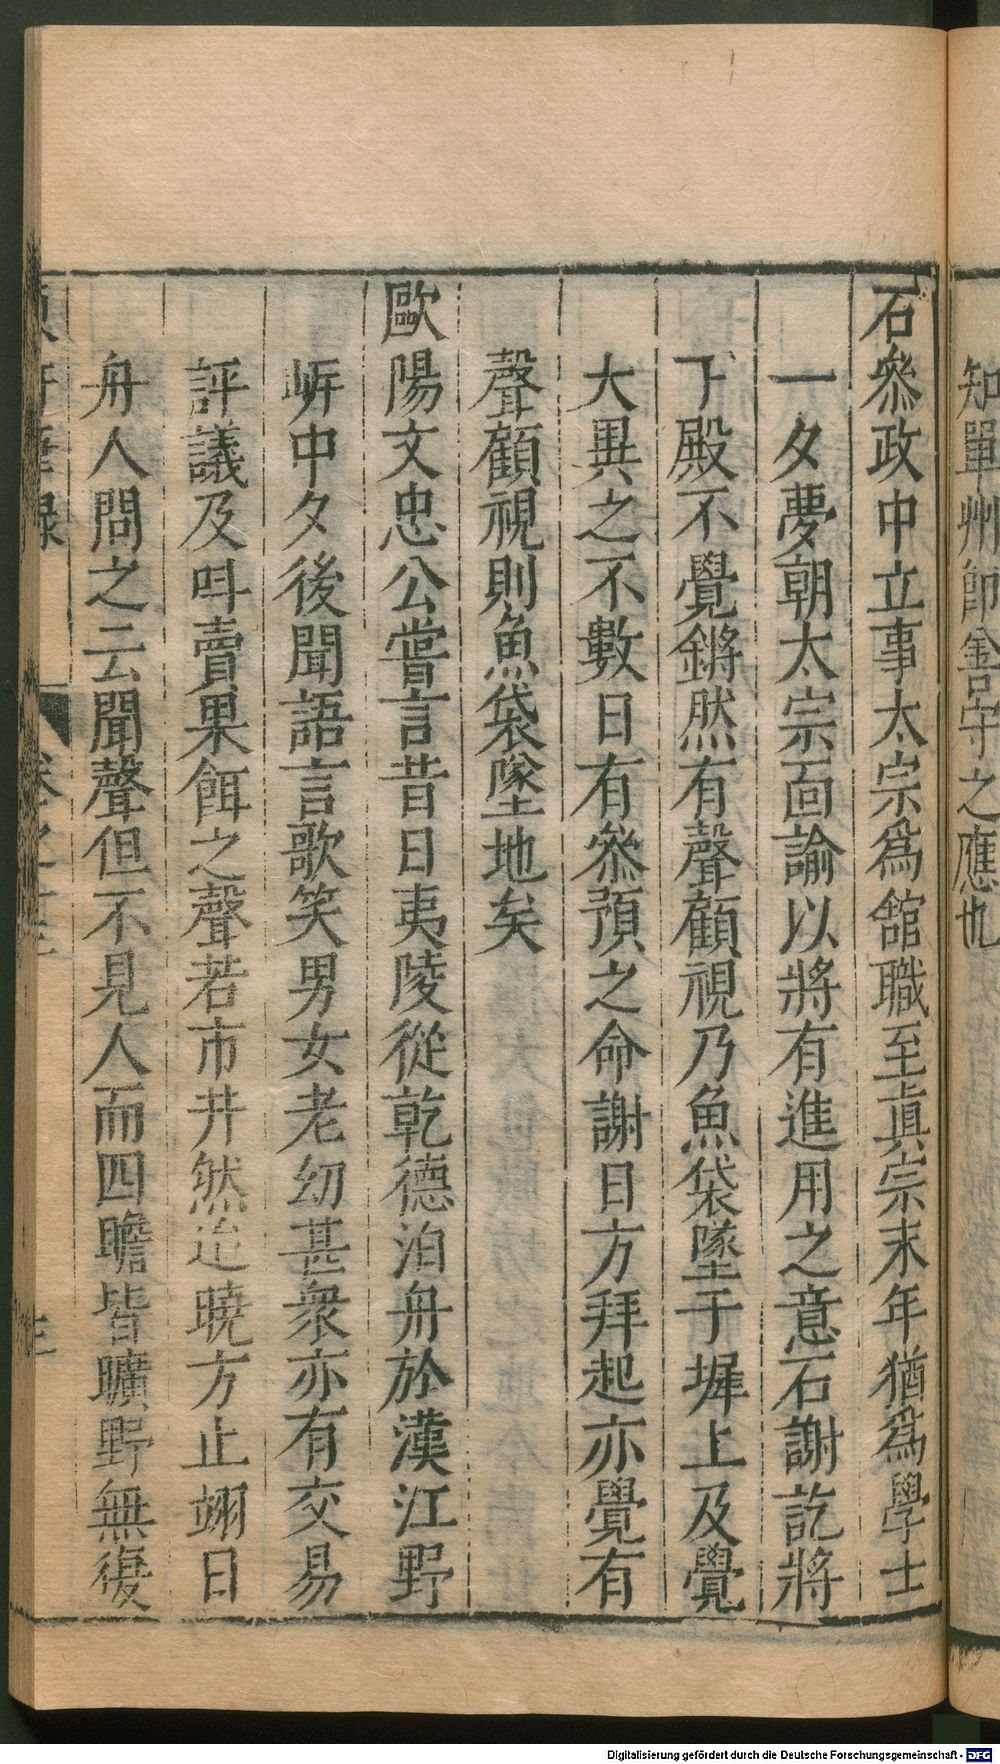 知單州師

之應也
石叅政中立事太宗爲舘職至眞宗末年猶爲學士
一夕夢朝太宗靣諭以將有進用之意石謝訖將
下殿不覺鏘然有聲顧視乃魚袋墜于墀上及覺
大異之不數日有叅預之命謝日方拜起亦覺有
聲顧視則魚袋墜地矣
歐陽文忠公嘗言昔日夷陵從乾德泊舟於漢江野
岍中夕後聞語言歌笑男女老幼甚衆亦有交易
評議及呌賣果餌之聲若市井然迨曉方止翊日
舟人問之云聞聲但不見人而四瞻皆曠野無復
Digitalisierung gefördert durch die Deutsche Forschungsgemeinschaft - DFG